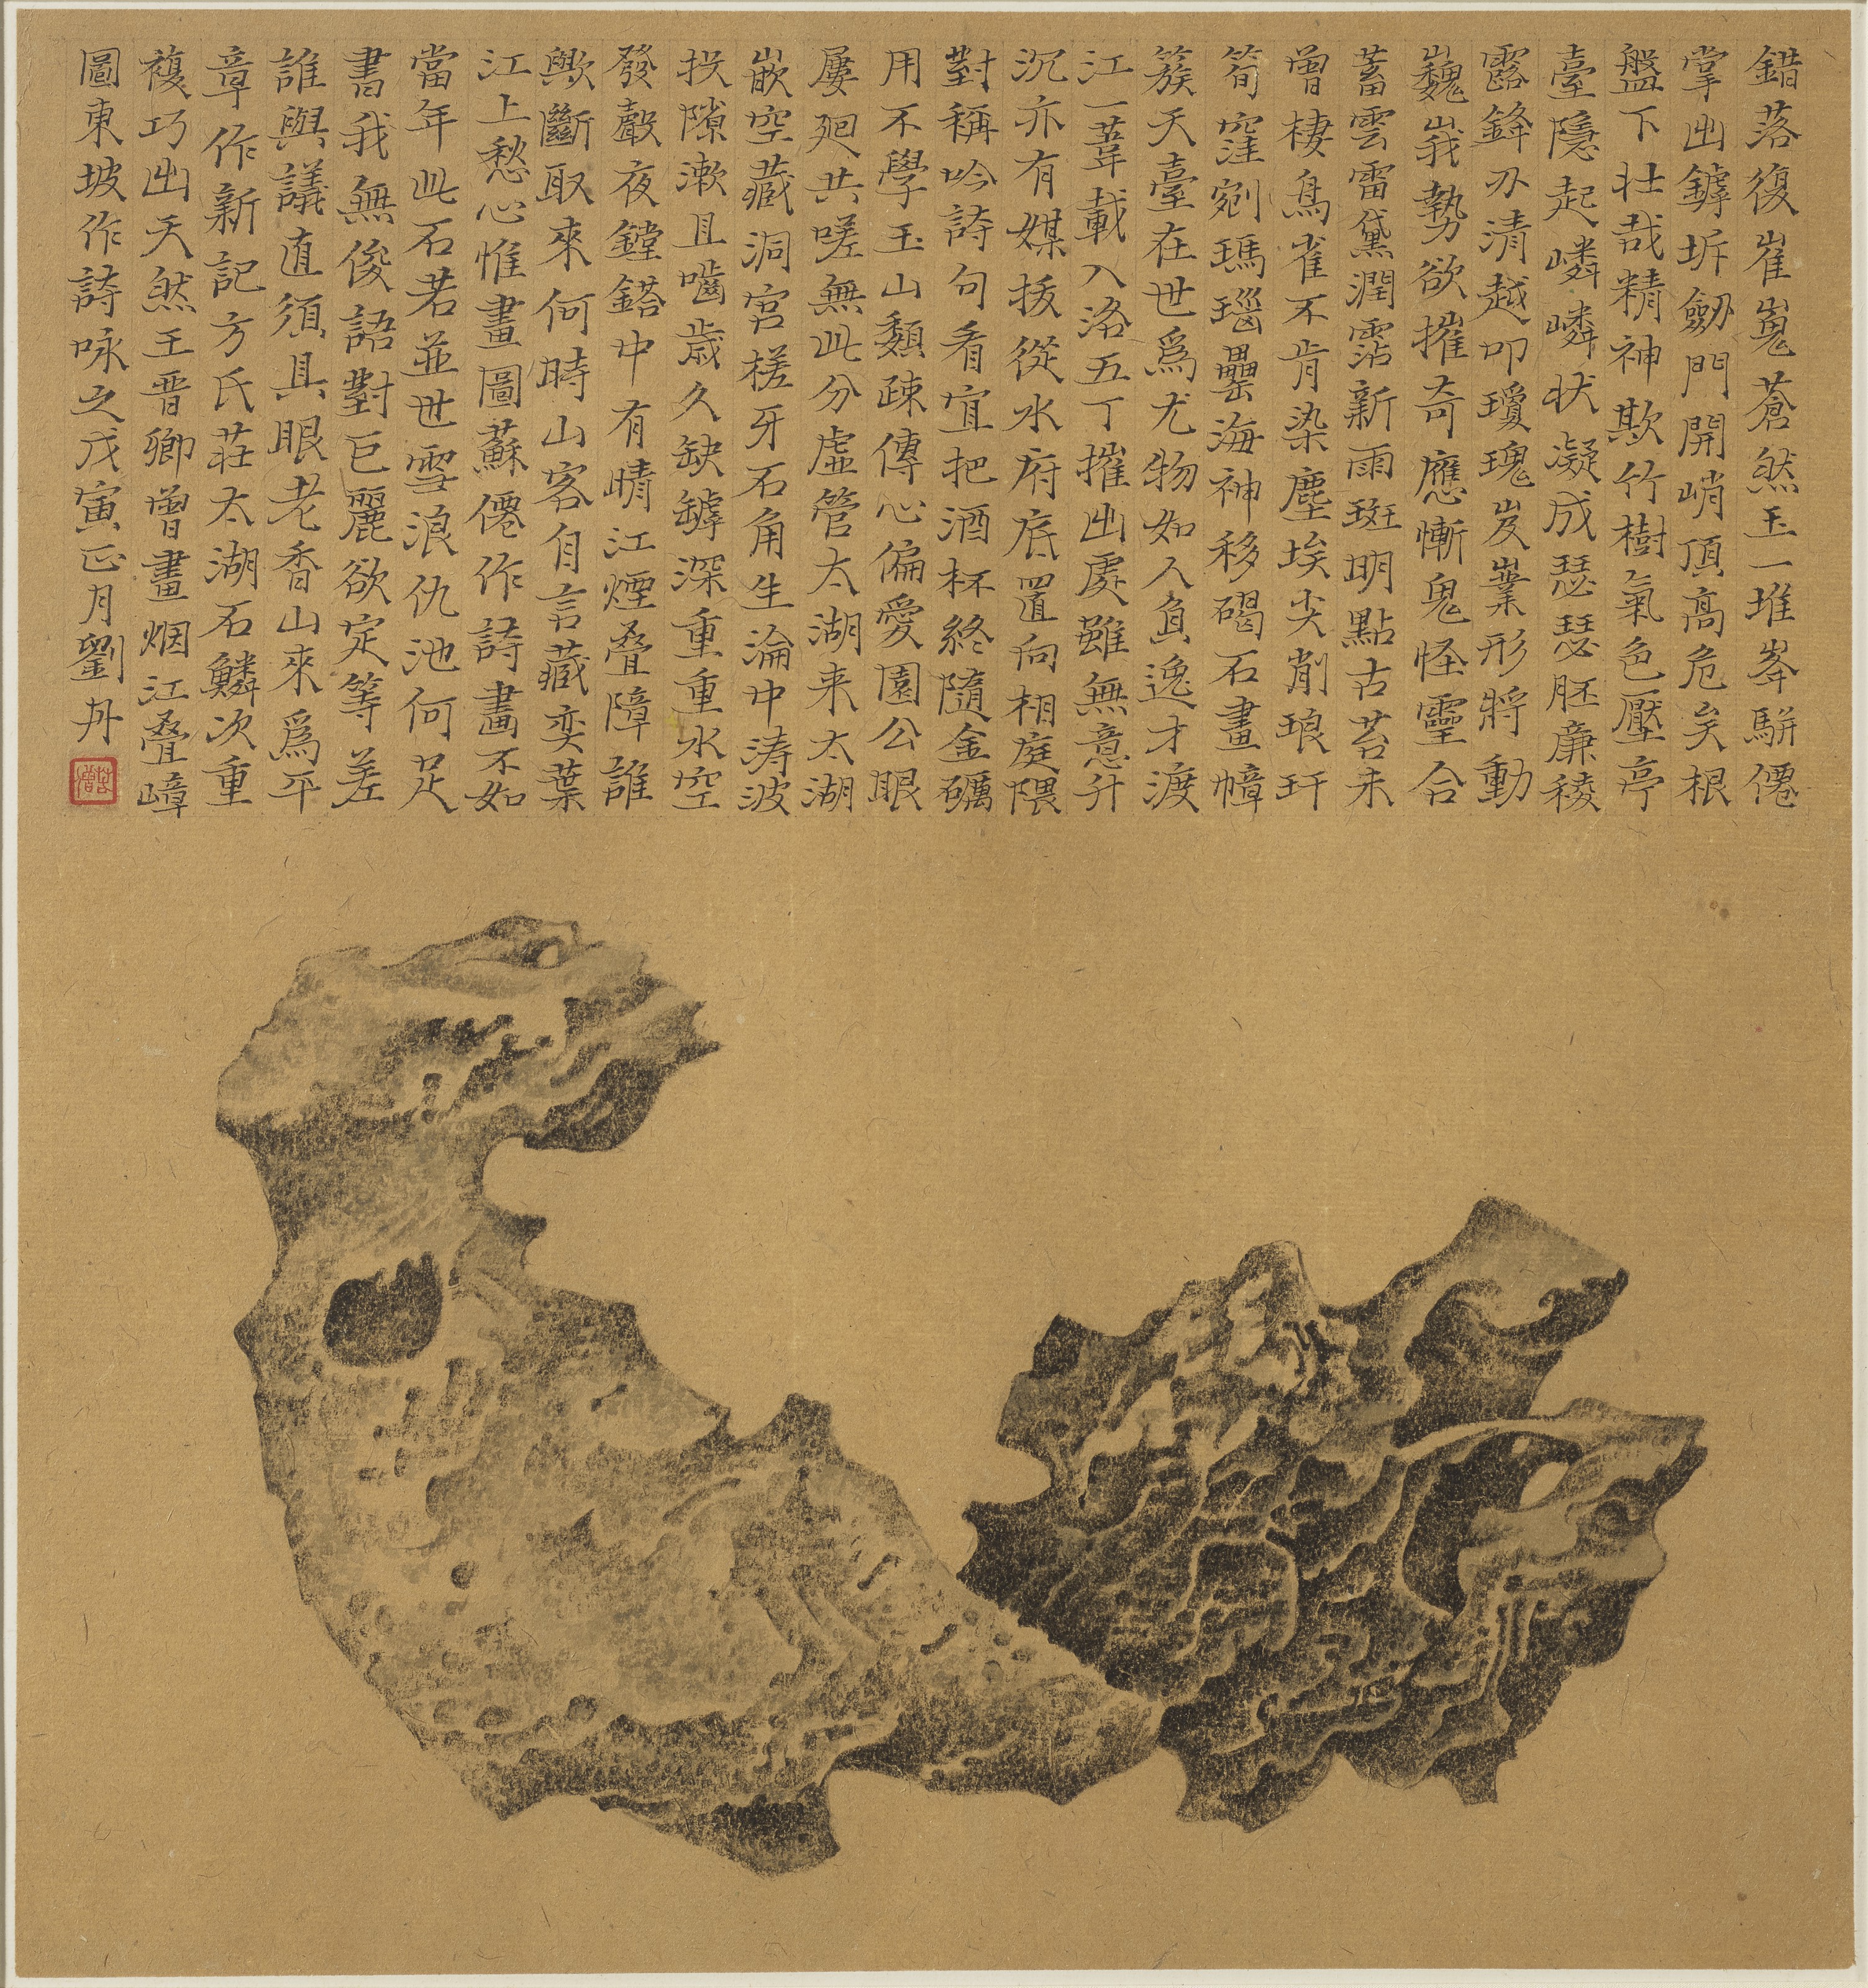 錯落復崔嵬蒼然玉一堆峯駢僊
掌出罅坼劒門開峭頂高危矣根
盤下壯哉精神欺竹樹氣色壓亭
臺隱起嶙嶙状凝成瑟瑟胚廉稜
露鋒刅清越叩瓊瑰岌嶪形將動
巍峩勢欲摧奇應慚鬼怪靈合
蓄雲雷黛潤霑新雨斑明點古苔未
曽棲鳥雀不肯染塵埃尖削琅玕
筍窪剜瑪瑙罍海神移碣石畫幛
簇天臺在世爲尤物如人負逸才渡
江一葦載入洛五丁摧出處雖無意升
沉亦有媒拔從水府底置向相庭隈
對稱吟詩句看宜把酒杯終隨金礪
用不學玉山頽疎傅心偏愛園公眼
屢迴共嗟無此分虛管太湖来太湖
嵌空藏洞宫槎牙石角生淪中涛波
投隙漱且嚙歳久缺罅深重重水空
發聲夜鏜鎝中有晴江煙叠障誰
歟斷取來何時山客自言藏奕葉
江上愁心惟畫圖蘇僊作詩畵不如
當年此石若並世雪浪仇池何足
書我無俊語對巨麗欲定等差
誰與議直須具眼老香山來爲平
章作新記方氏莊太湖石鱗次重
複巧出天然王晋卿曽畫烟江叠嶂
圖東坡作詩咏之戊寅正月劉丹